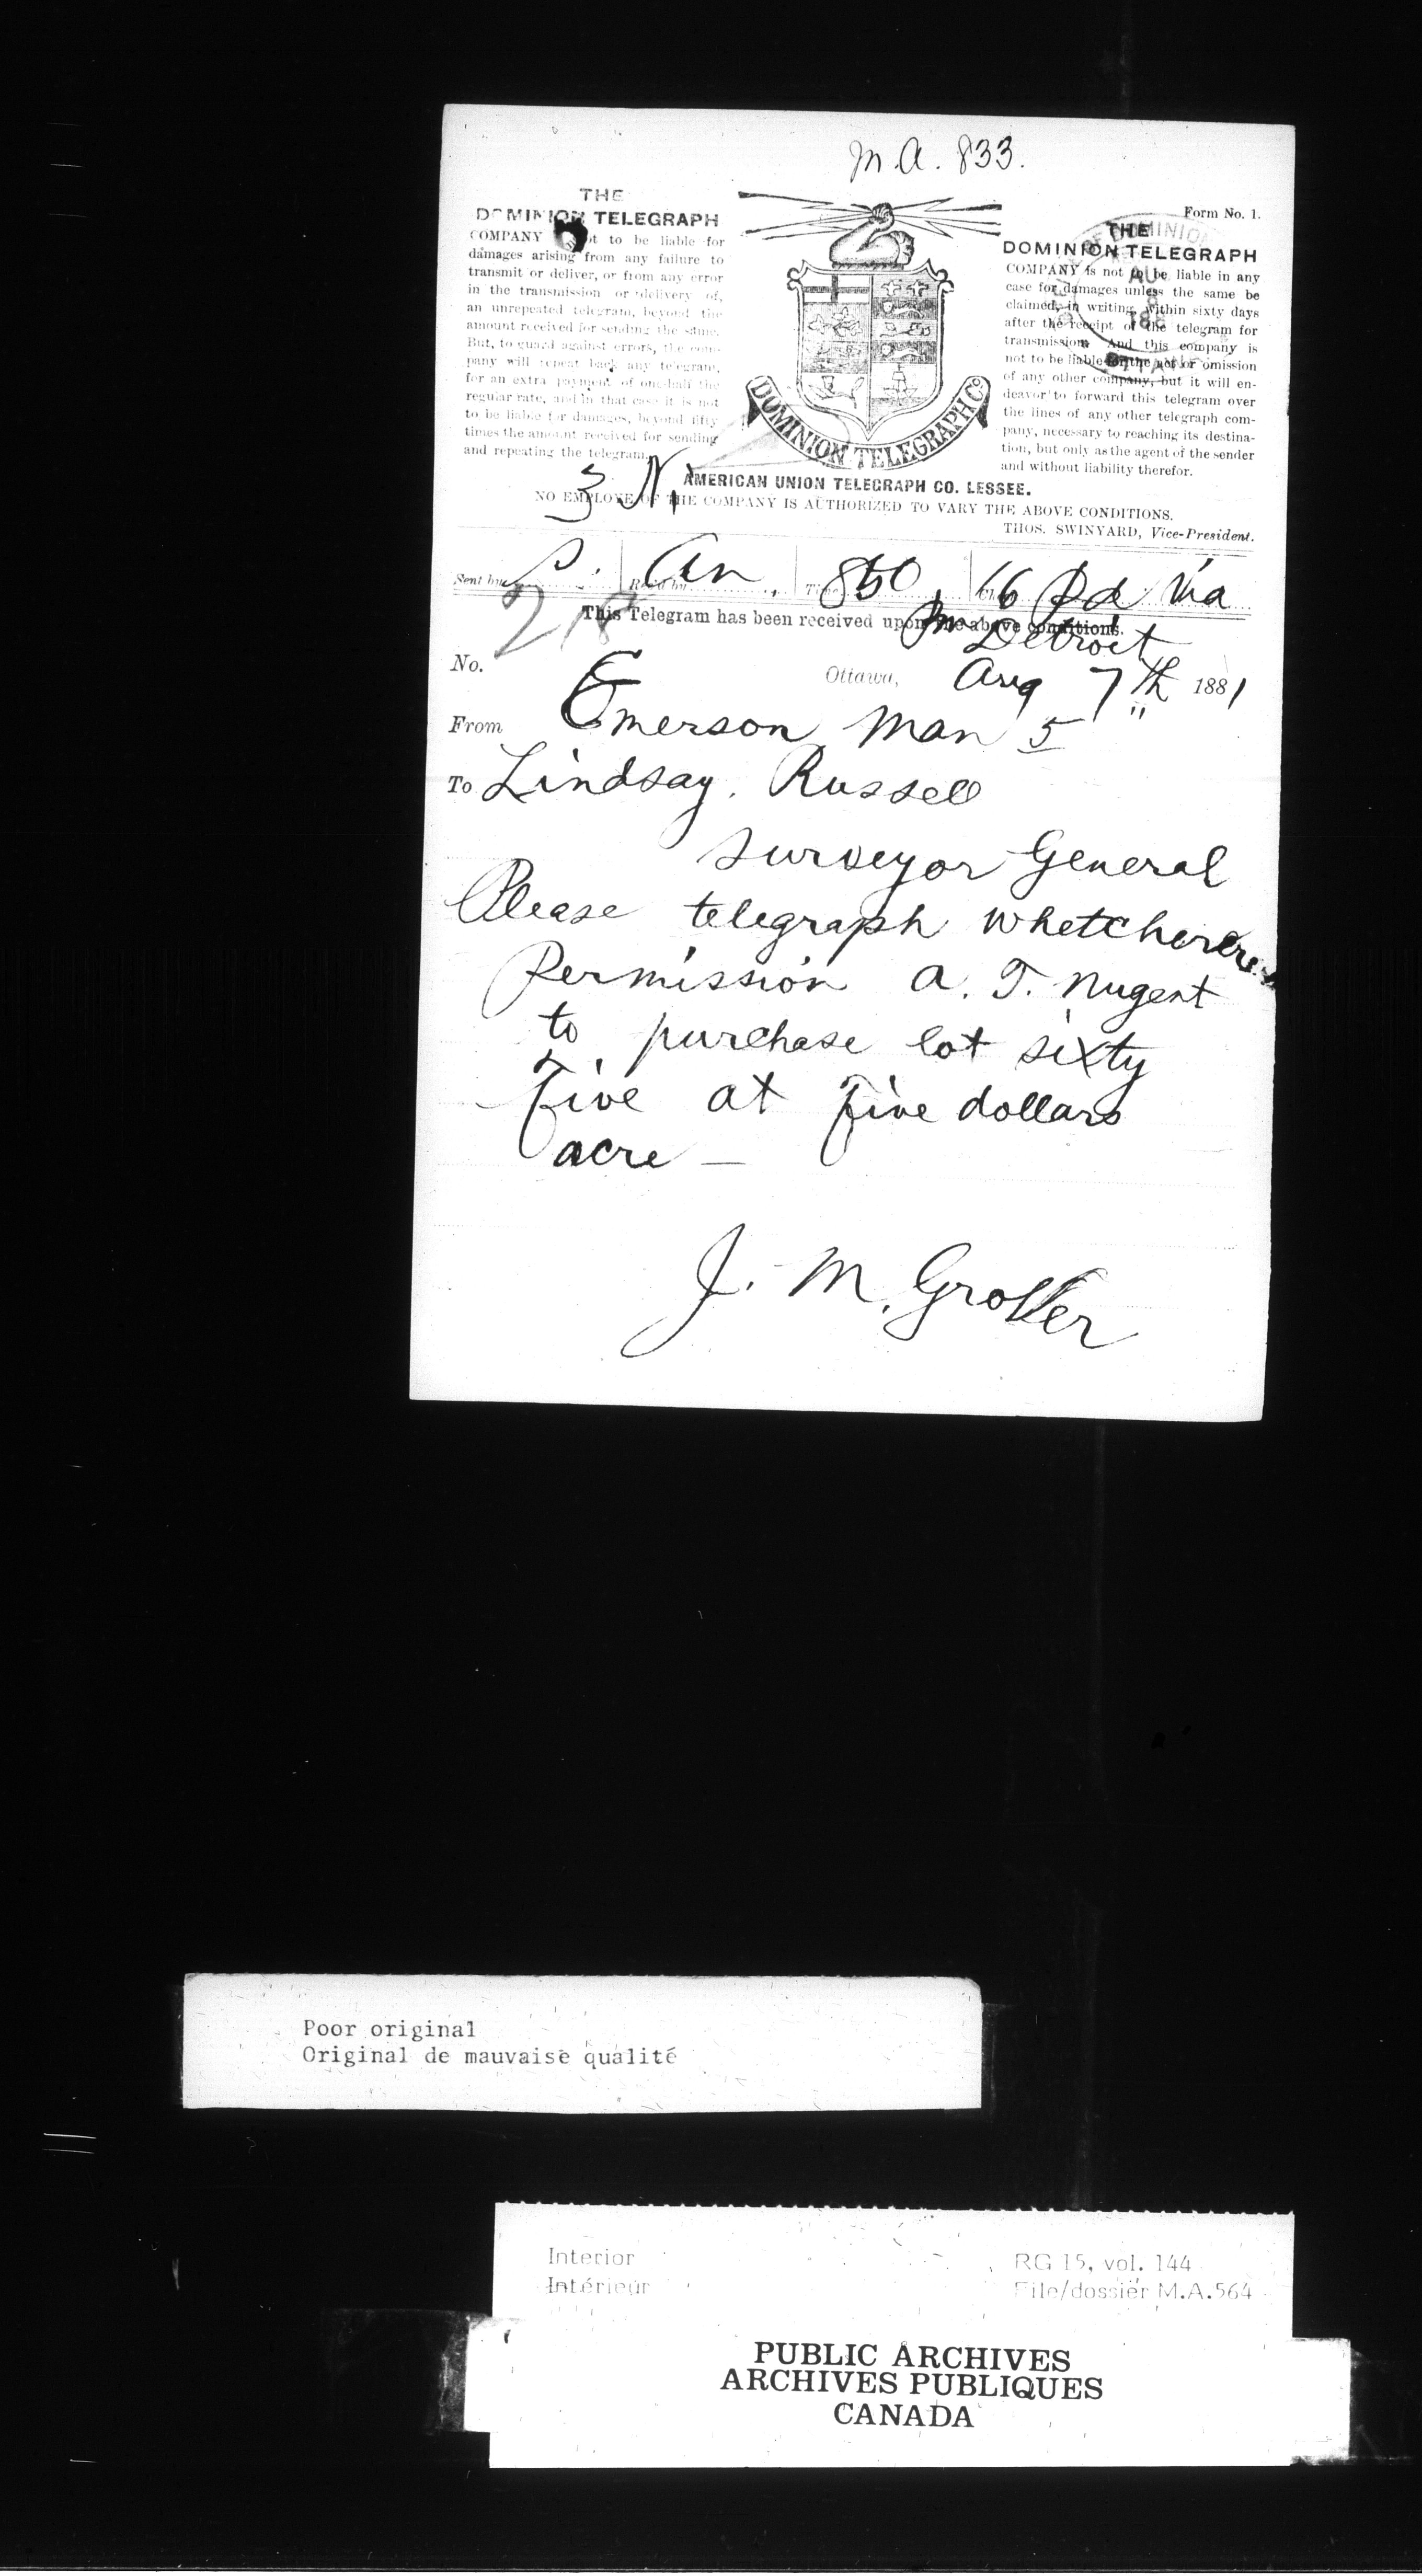 M.A. 833.
THE
DOMINION TELEGRAPH
COMPANY not to be liable for
damages arising from any failure to
transmit or deliver, or from any error
in the transmission or delivery of,
an unrepeated telegram, beyond the
amount received for sending the same.
But, to guard against errors, the com-
pany will repeat back any telegram,
for an extra payment of one-half the
regular rate, and in that case it is not
to be liable for damages, beyond fifty
times the amount received for sending
and repeating the telegram.
DOMINION TELEGRAPH Co.
Form No. 1.
THE
DOMINION TELEGRAPH
COMPANY is not to be liable in any
case for damages unless the same be
claimed, in writing, within sixty days
after the receipt of the telegram for
transmission. And this company is
not to be liable for the act or omission
of any other company, but it will en-
deavor to forward this telegram over
the lines of any other telegraph com-
pany, necessary to reaching its destina-
tion, but only as the agent of the sender
and without liability therefor.
3 N.
AMERICAN UNION TELEGRAPH CO. LESSEE.
NO EMPLOYE OF THE COMPANY IS AUTHORIZED TO VARY THE ABOVE CONDITIONS.
THOS. SWINYARD, Vice-President.
Sent by S. Rec'd by An, Time 850 16 Pd Via
This Telegram has been received upon the above conditions.
218 Pm Detroit
No. Ottawa, Aug 7th 1881
From Emerson Man 5
To Lindsay. Russell
Surveyor General
Please telegraph whetcher
Permission A. T. Nugent
to purchase lot sixty
Five at Five dollars
acre —
J. M. Grover
Poor original
Original de mauvaise qualité
Interior
Intérieur
RG 15, vol. 144
File/dossier M.A.564
PUBLIC ARCHIVES
ARCHIVES PUBLIQUES
CANADA